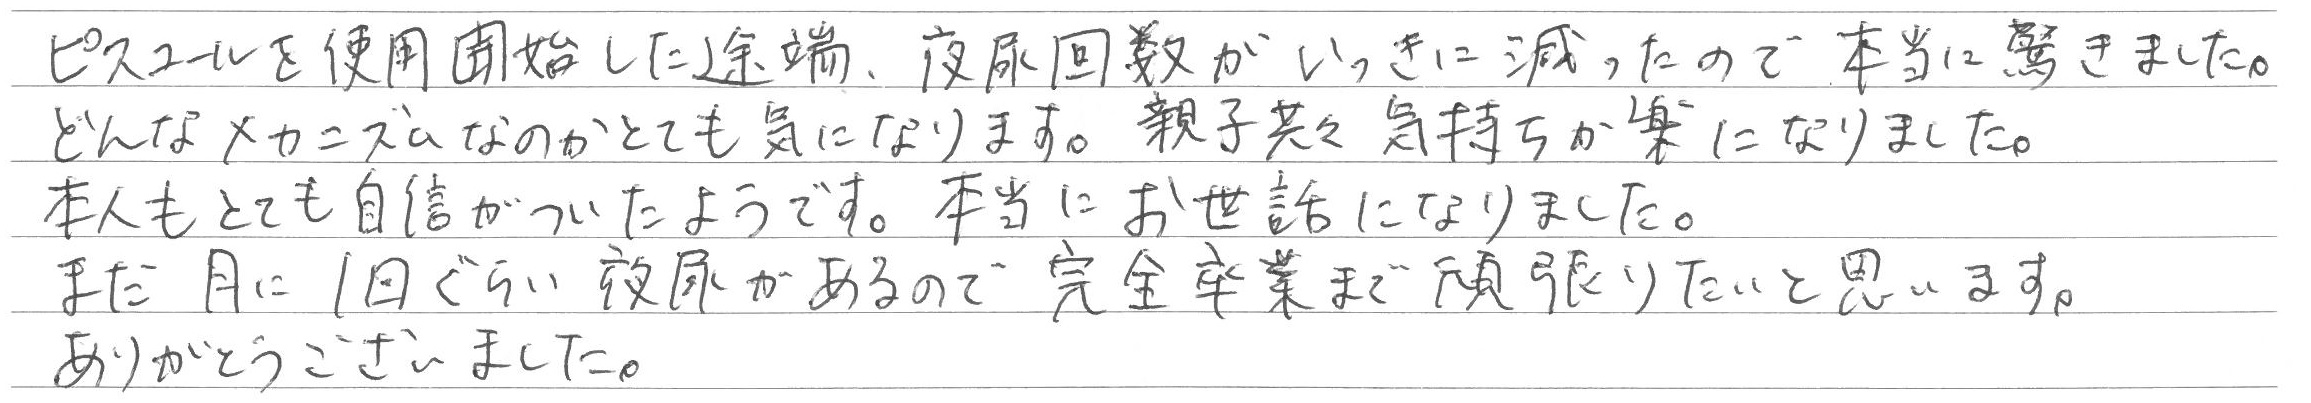 ピスコールを使用開始した途端、夜尿回数がいっきに減ったので本当に驚きました。
どんなメカニズムなのかとても気になります。親子共々気持ちが楽になりました。
本人もとても自信がついたようです。本当にお世話になりました。
まだ月に1回ぐらい夜尿があるので完全卒業まで頑張りたいと思います。
ありがとうございました。